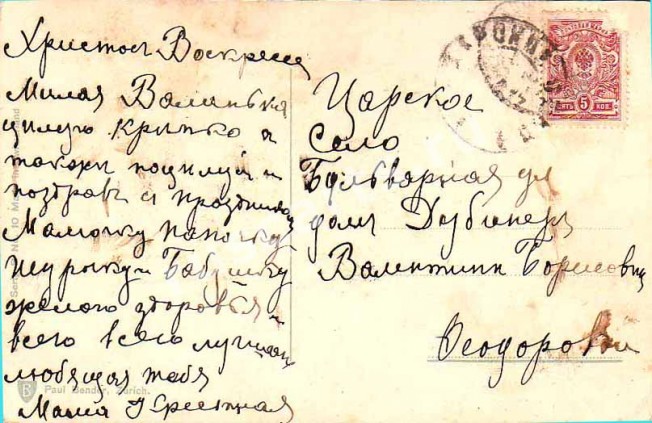 Христосъ Воскресе
Милая Валинька
цилую крѣпко а
также поцилуй и
поздравь съ праздникомъ
Мамочку папочку
Шурочку и Бабушку
желаю здоровья и
всего всего лучшаго
любящая тебя
Мама Крестная
Царское
Село
Бульварная ул
домъ
Валентинѣ Борисовнѣ
Ѳеодоровой
ПЯТЬ 5 КОП.
Paul Bender, Zürich.